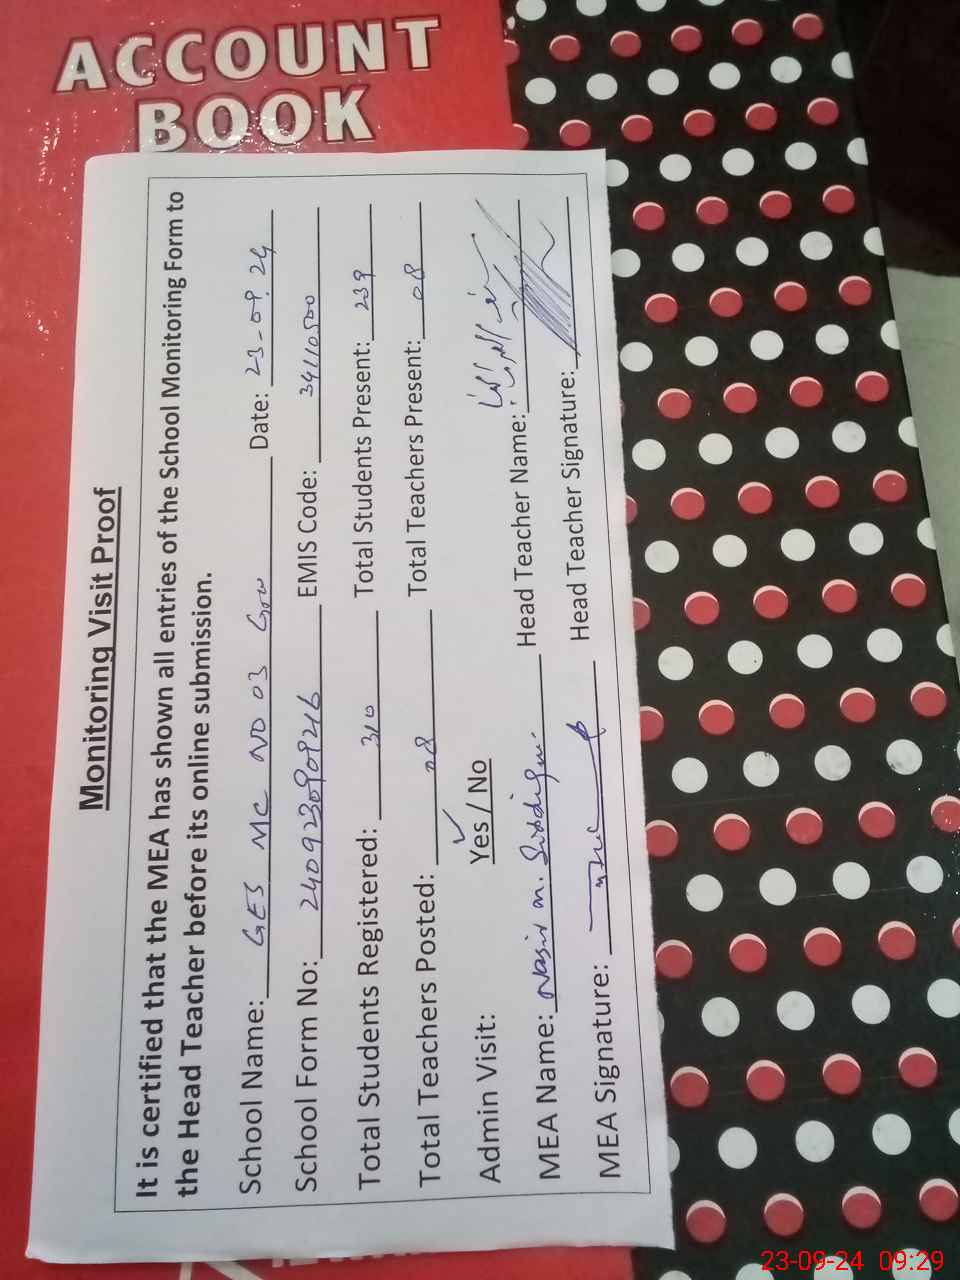 ACCOUNT
BOOK
Monitoring Visit Proof
It is certified that the MEA has shown all entries of the School Monitoring Form to
the Head Teacher before its online submission.
School Name: GES MC NO 03 Date: 23-09.24
School Form No: EMIS Code: 34110500
Total Students Registered: 310 Total Students Present: 239
Total Teachers Posted: 08 Total Teachers Present: 08
Admin Visit: Yes / No
MEA Name: Nasir m. Siddiqui Head Teacher Name:
MEA Signature: Head Teacher Signature:
23-09-24 09:29